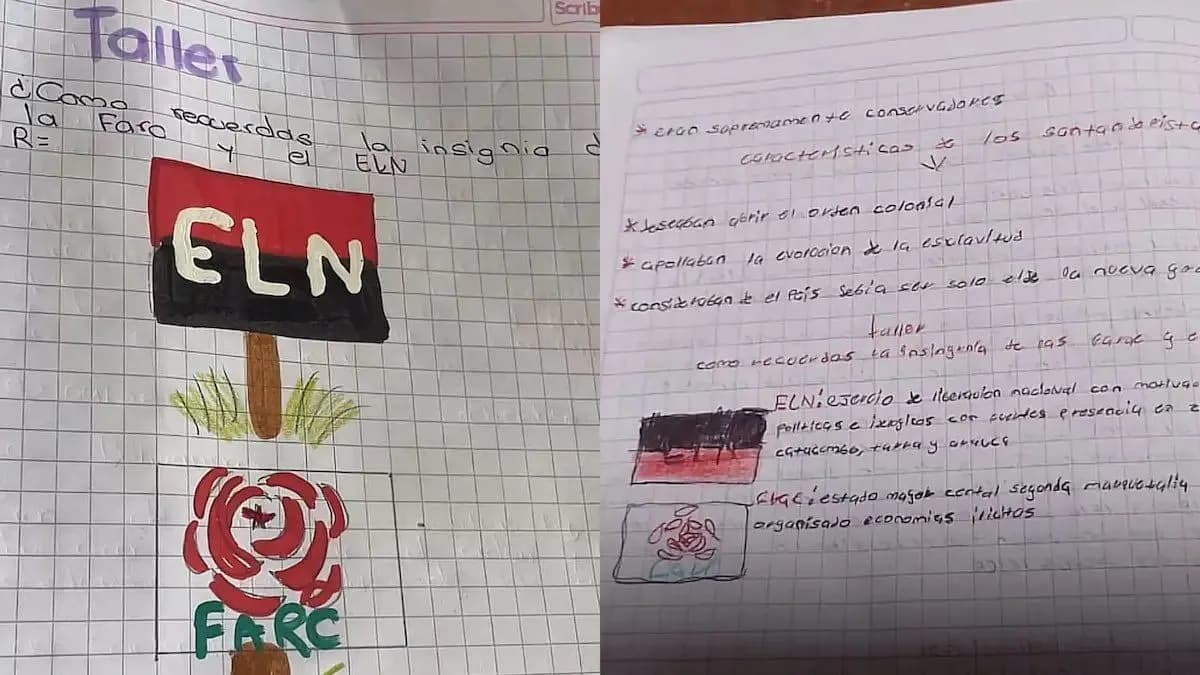 Scrib
Taller
¿Como recuerdas la insignia d
la Farc y el ELN
R=
ELN
FARC
* eran sopremamente conservadores
características de los santanderista
* deseaban abrir el orden colonial
* apollaban la de la esclavitud
* consideraban de el País debia ser solo de la nueva
taller
como recuerdas la de las y e
ELN: ejercio de liberacion nacional con motiva
politicas e con fuertes presencia en
catacombo, tarra y arauca
estado mayor cental segonda marquetalia
organisado economias ilicitas